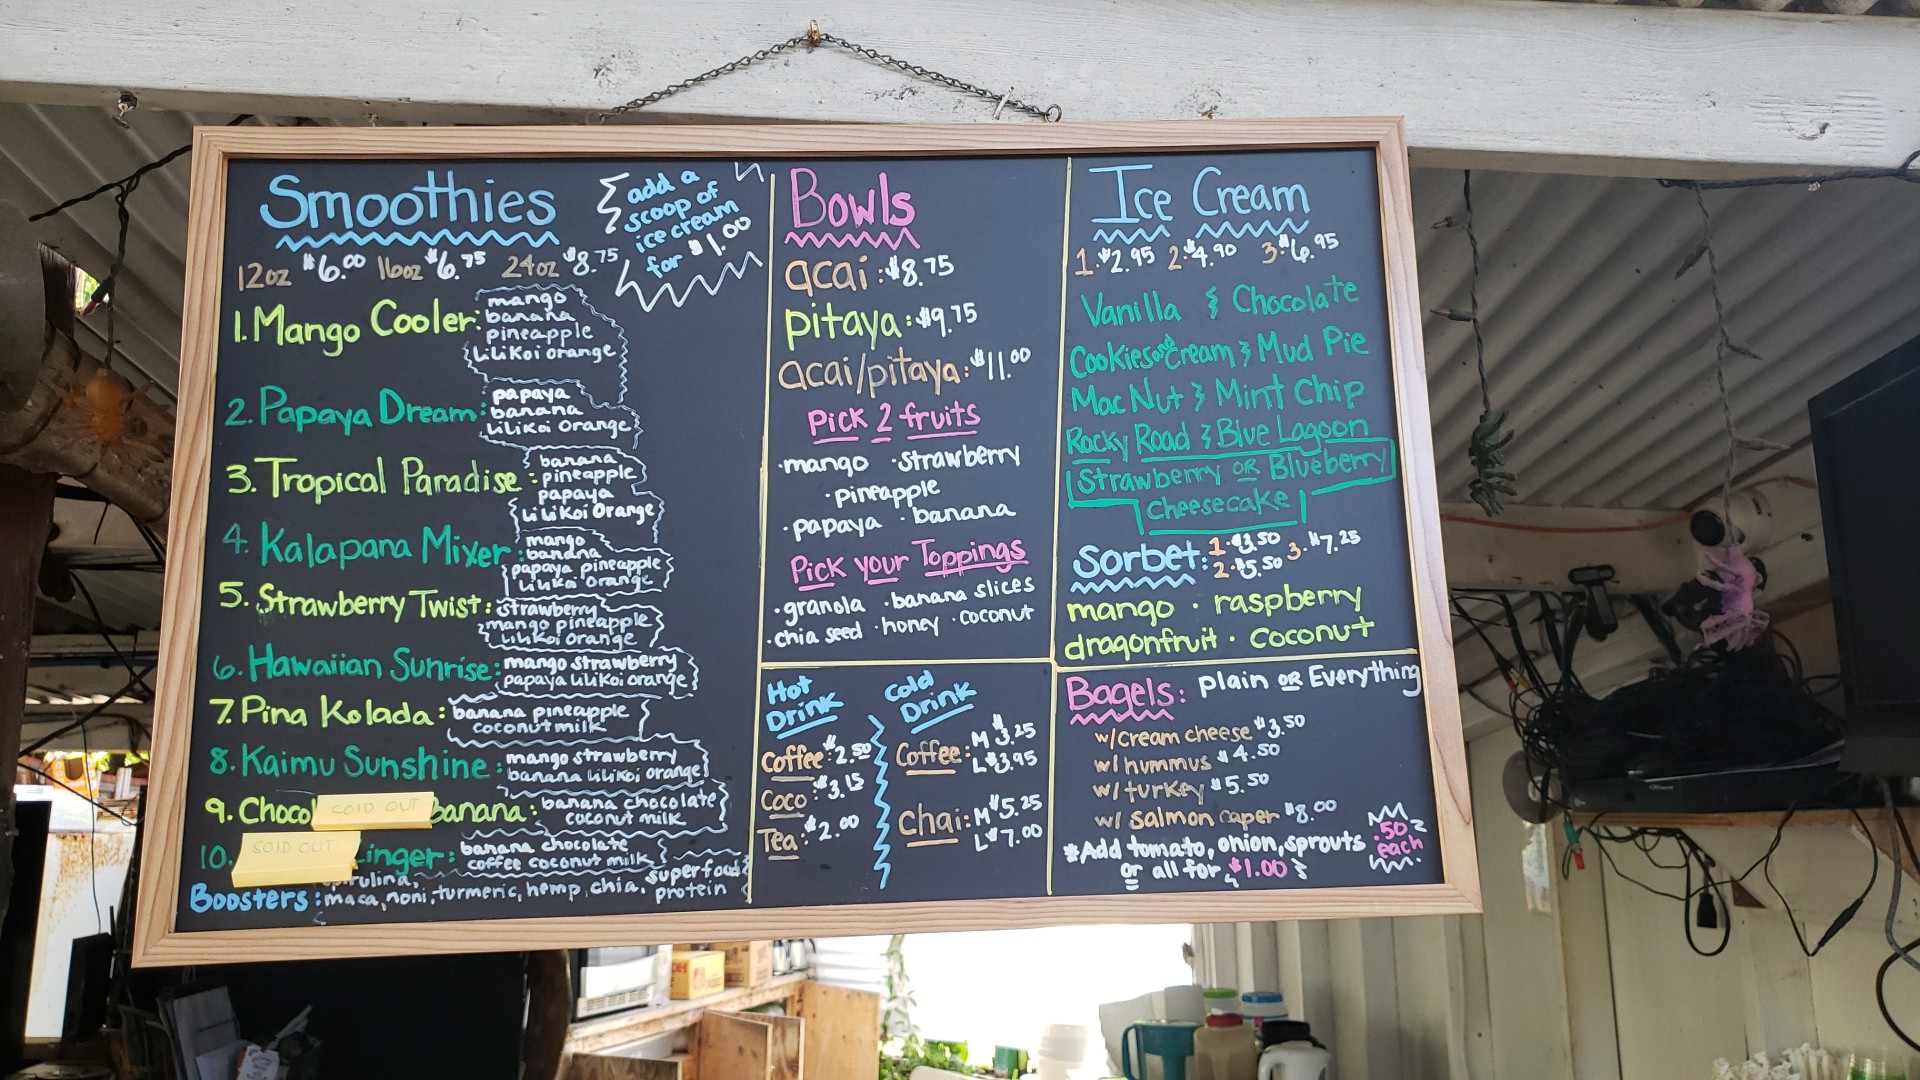 Smoothies
add a
scoop of
ice cream
for $1.00
12oz $6.00 16oz $6.75 24oz $8.75
1. Mango Cooler: mango
banana
pineapple
Lilikoi orange
2. Papaya Dream: papaya
banana
Lilikoi Orange
3. Tropical Paradise: banana
pineapple
papaya
Lilikoi Orange
4. Kalapana Mixer: mango
banana
papaya pineapple
Lilikoi orange
5. Strawberry Twist: strawberry
mango pineapple
Lilikoi orange
6. Hawaiian Sunrise: mango strawberry
papaya Lilikoi orange
7. Pina Kolada: banana pineapple
coconut milk
8. Kaimu Sunshine: mango strawberry
banana lilikoi orange
9. Choco SOLD OUT Banana: banana chocolate
coconut milk
10. SOLD OUT Linger: banana chocolate
coffee coconut milk
Boosters: spirulina, maca, noni, turmeric, hemp, chia, superfood
protein
Bowls
acai: $8.75
pitaya: $9.75
acai/pitaya: $11.00
Pick 2 fruits
·mango ·strawberry
·pineapple
·papaya ·banana
Pick your Toppings
·granola ·banana slices
·chia seed ·honey ·coconut
Hot
Drink
Coffee $2.50
Coco: $3.15
Tea: $2.00
Cold
Drink
Coffee: M $3.25
L $3.95
Chai: M $5.25
L $7.00
Ice Cream
1. $2.95 2. $4.90 3. $6.95
Vanilla & Chocolate
Cookies and Cream & Mud Pie
Mac Nut & Mint Chip
Rocky Road & Blue Lagoon
Strawberry OR Blueberry
Cheesecake
Sorbet: 1. $3.50 3. $7.25
2. $5.50
mango · raspberry
dragonfruit · coconut
Bagels: plain OR Everything
w/cream cheese $3.50
w/ hummus $4.50
w/ turkey $5.50
w/ salmon caper $8.00
*Add tomato, onion, sprouts .50 each
or all for $1.00